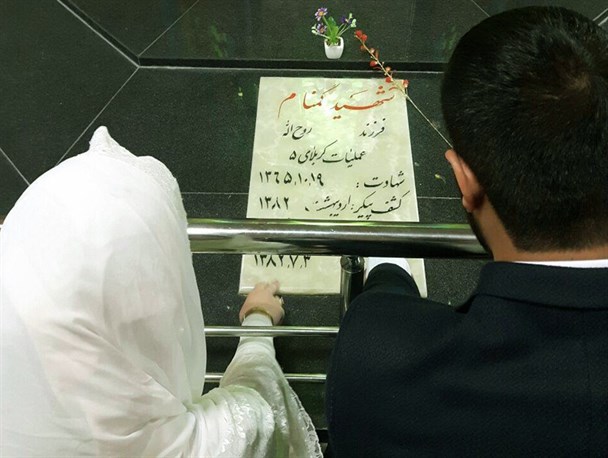 شهید گمنام
فرزند روح الله
عملیات کربلای ۵
شهادت : ۱۳۶۵,۱۰,۱۹
کشف پیکر : اردیبهشت ۱۳۸۲
۱۳۸۲,۷,۳